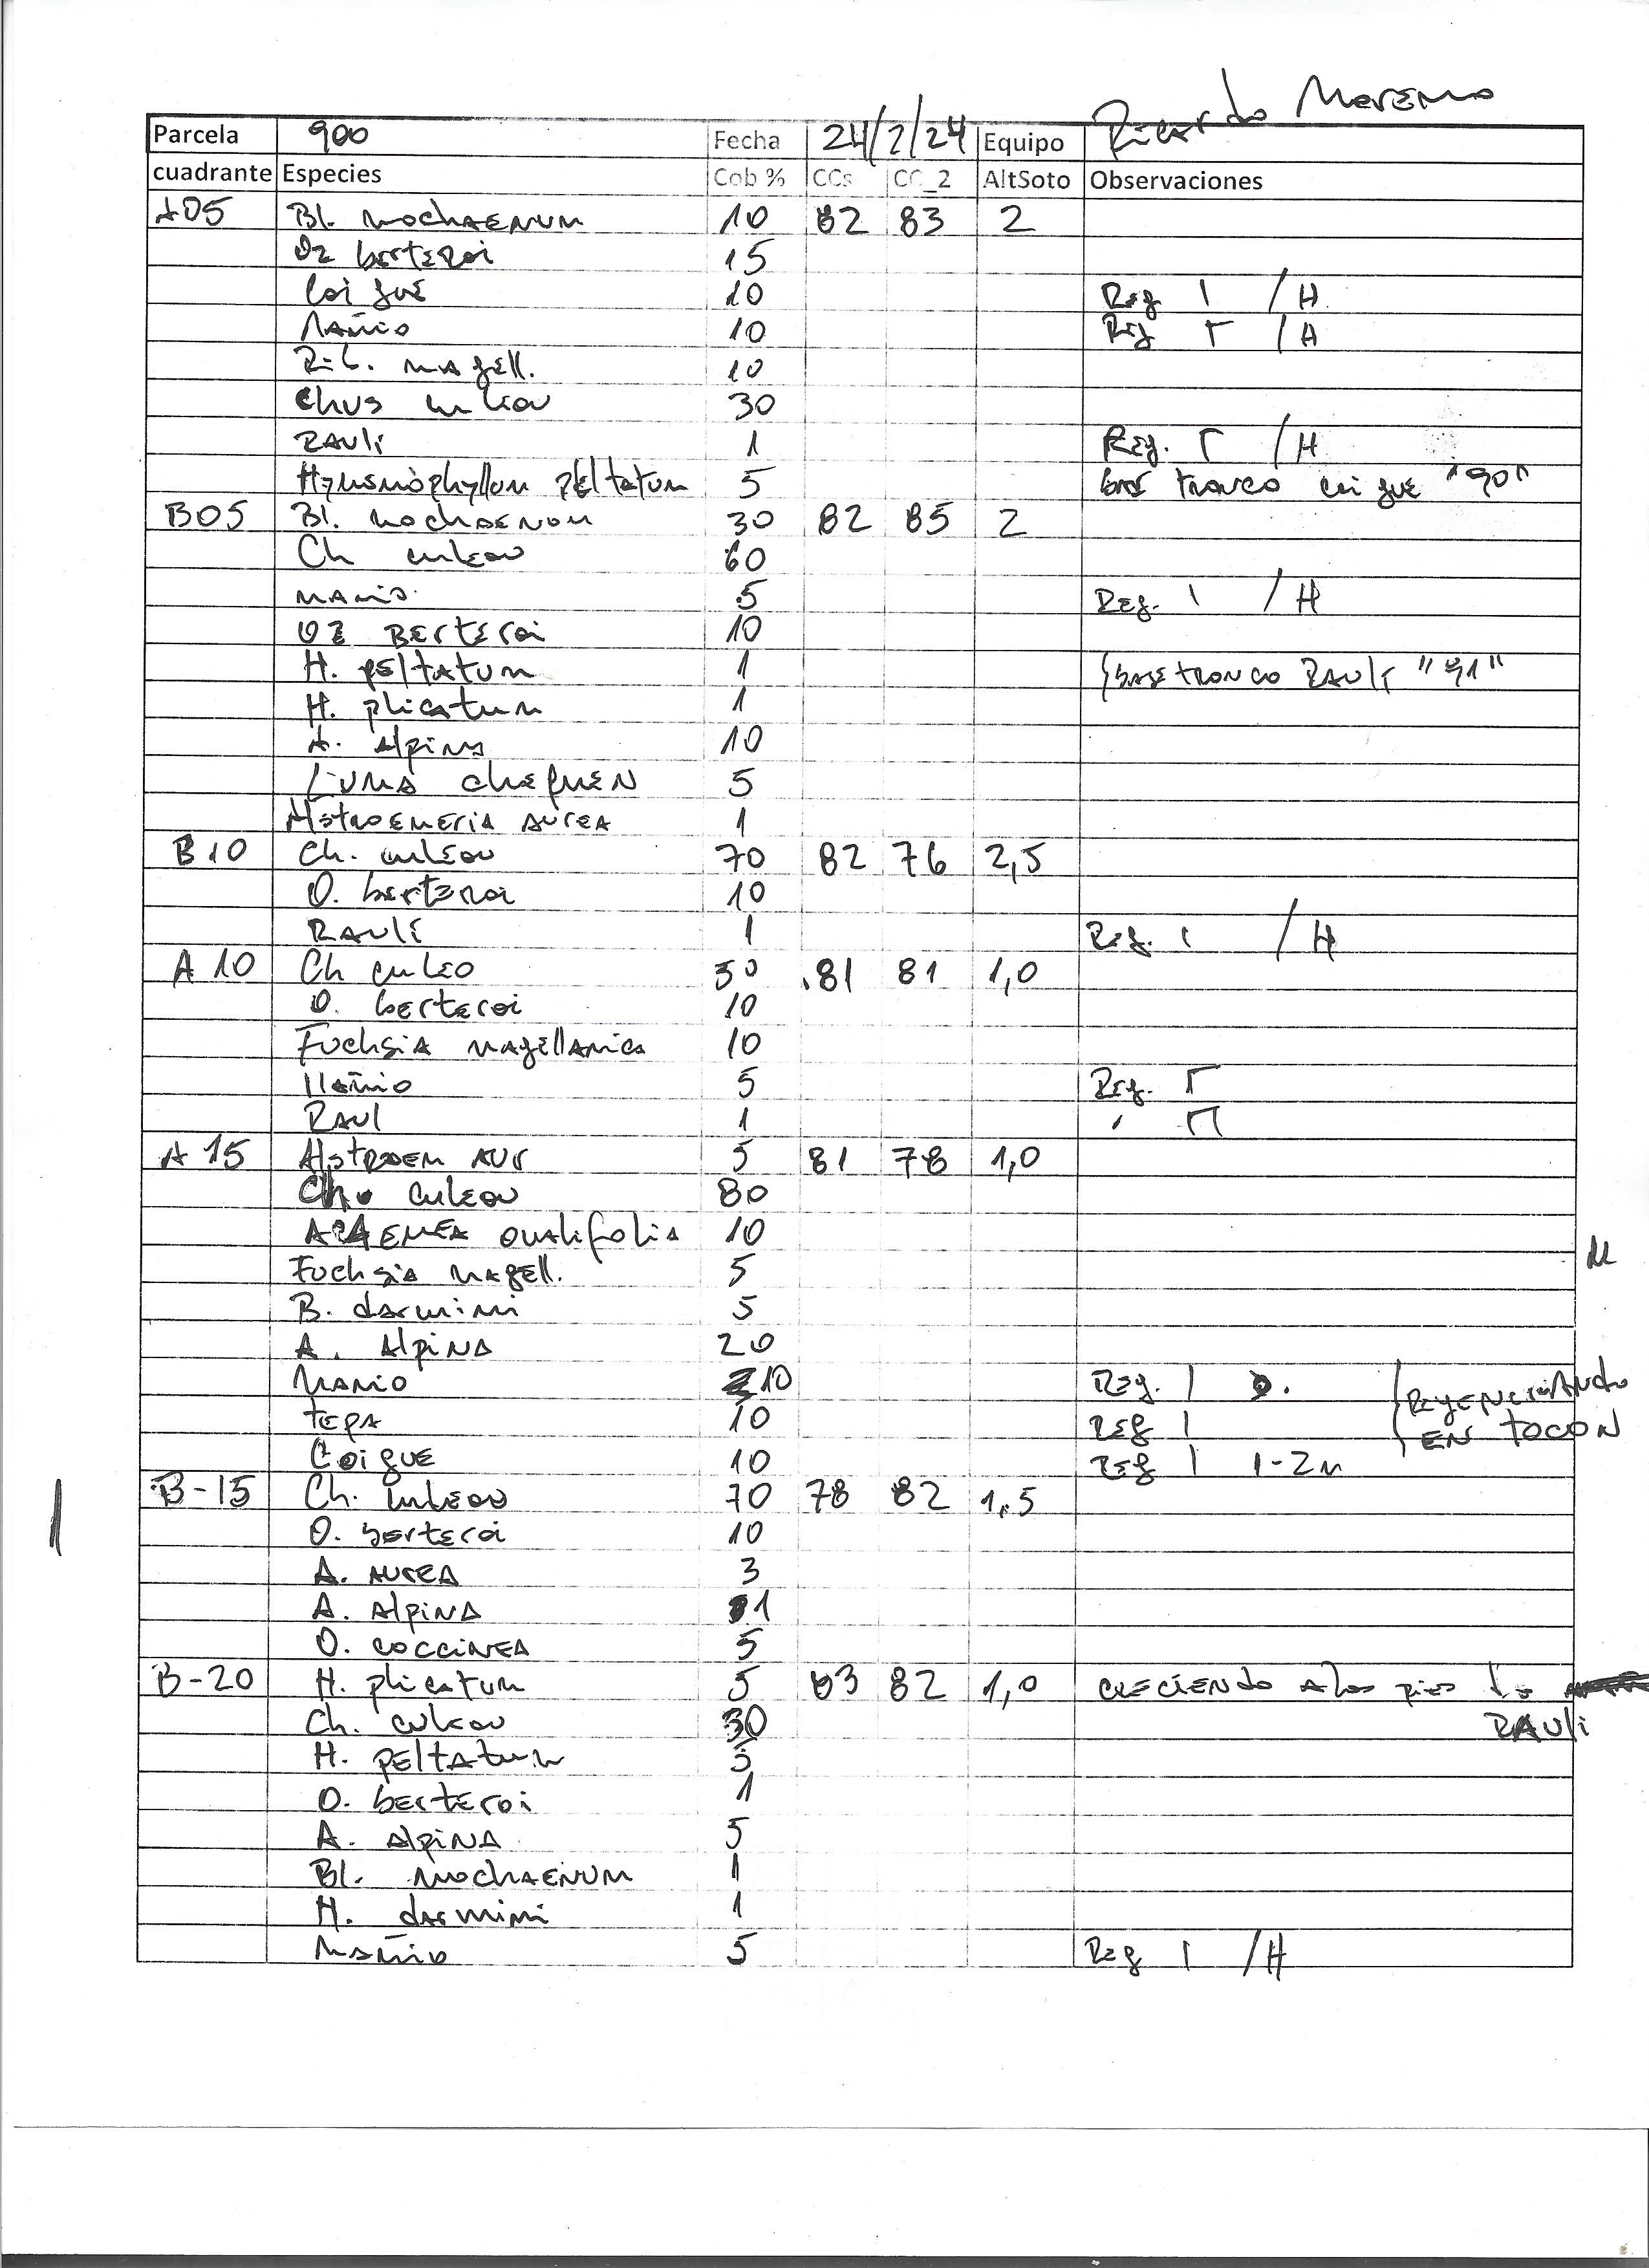 Ricardo Moreno
Parcela 900 Fecha 24/2/24 Equipo
cuadrante Especies Cob % CCs CC_2 AltSoto Observaciones
A05 Bl. mochaenum 10 82 83 2
Oz berteroi 15
Coigue 10 Reg I /H
Mañio 10 Reg Γ /H
Rib. magell. 10
Chus culeou 30
Rauli 1 Reg. Γ /H
Hymenophyllum peltatum 5 base tronco coigue "90"
B05 Bl. mochaenum 30 82 85 2
Ch culeou 60
Manio. 5 Reg. I /H
OZ Berteroi 10
H. peltatum 1 base tronco Rauli "91"
H. plicatum 1
A. alpina 10
Luma chequen 5
Alstroemeria aurea 1
B10 Ch. culeou 70 82 76 2,5
O. berteroi 10
Rauli 1 Reg. I /H
A 10 Ch culeo 50 81 81 1,0
O. berteroi 10
Fuchsia magellanica 10
Mañio 5 Reg. Γ
Raul 1 П
A 15 Alstroem aur 5 81 78 1,0
Ch. culeou 80
Acaenea ovalifolia 10
Fuchsia magell. 5
B. darwini 5
A. Alpina 20
Manio 10 Reg. I Regenerando
tepa 10 Reg I en tocon
Coigue 10 Reg I 1-2m
B-15 Ch. culeou 70 78 82 1,5
O. berteroi 10
A. aurea 3
A. Alpina 1
O. coccinea 5
B-20 H. plicatum 5 83 82 1,0 creciendo a los pies de
Rauli
Ch. culeou 30
H. peltatum 5
O. berteroi 1
A. alpina 5
Bl. mochaenum 1
H. darwini 1
Mañio 5 Reg I /H